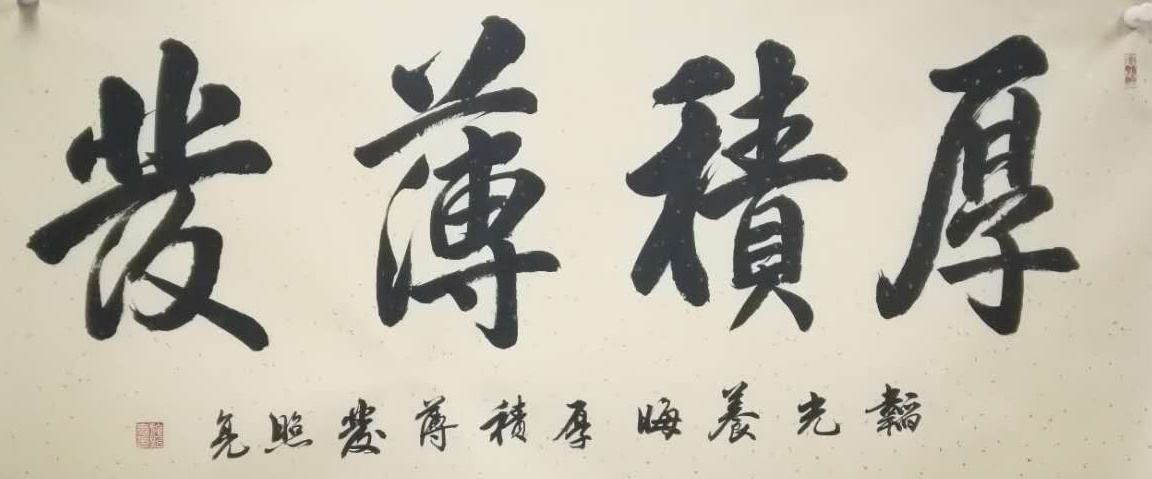 厚積薄發
韜光養晦厚積薄發照亮